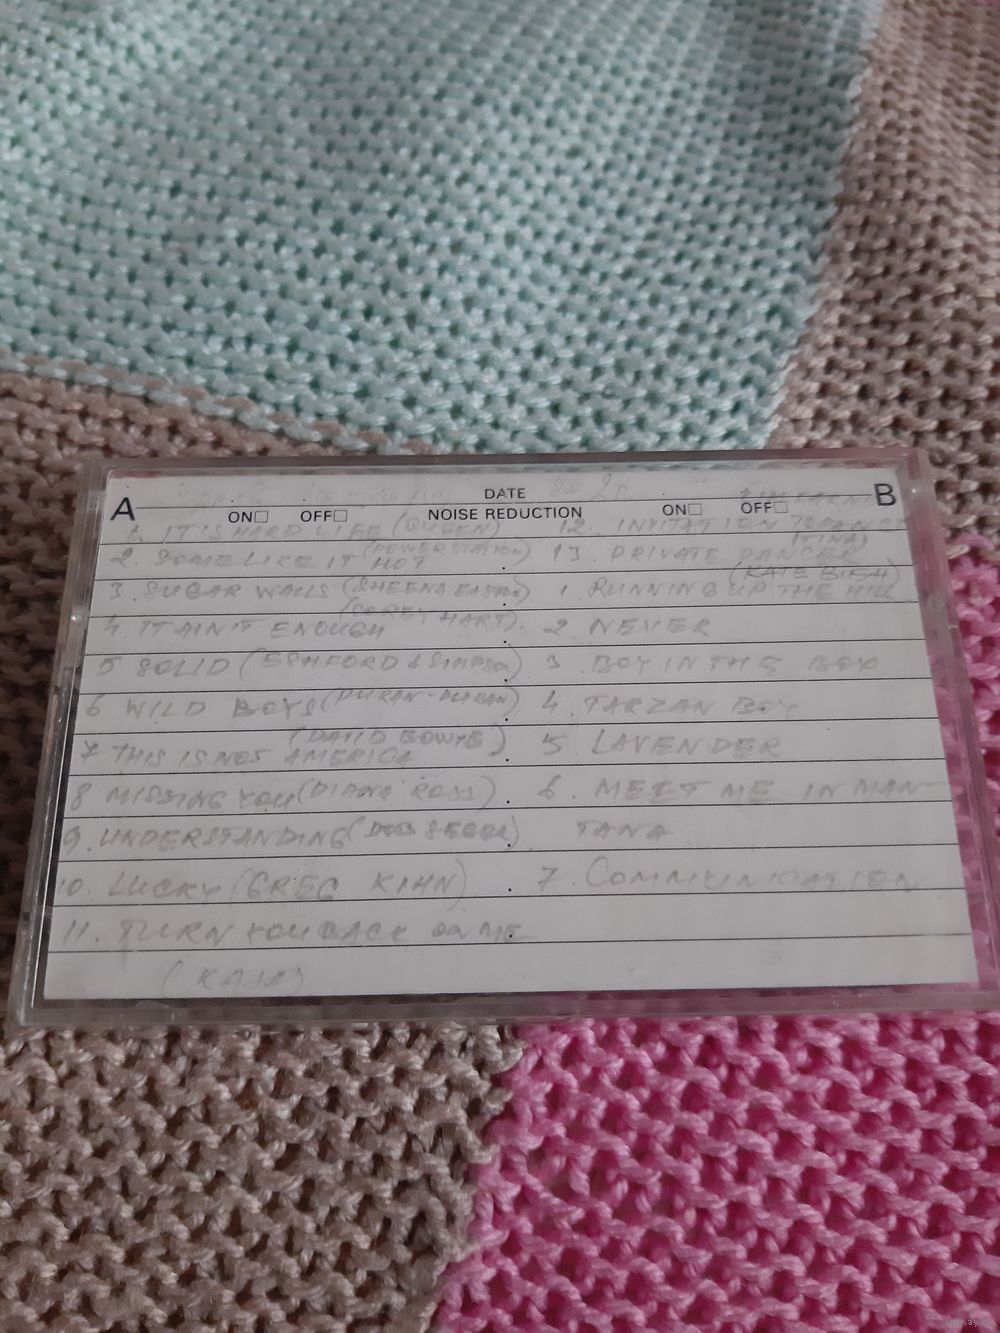 A DATE B
ON OFF NOISE REDUCTION ON OFF
1. IT'S HARD LIFE (QUEEN)
2. SOME LIKE IT HOT (POWER STATION)
3. SUGAR WALLS (SHEENA EASTON)
4. IT AIN'T ENOUGH (COREY HART)
5 SOLID (ESHFORD & SIMPSON)
6 WILD BOYS (DURAN-DURAN)
7 THIS IS NOT AMERICA (DAVID BOWIE)
8 MISSING YOU (DIANA ROSS)
9. UNDERSTANDING (BOB SEGER)
10. LUCKY (GREG KIHN)
11. TURN YOU BACK ON ME
(KAJA)
12. INVITATION TO DANCE
13. PRIVATE DANCER (TINA)
1. RUNNING UP THE HILL (KATE BUSH)
2 NEVER
3 BOY IN THE BOX
4. TARZAN BOY
5 LAVENDER
6. MEET ME IN MAN-
TANA
7. COMMUNICATION